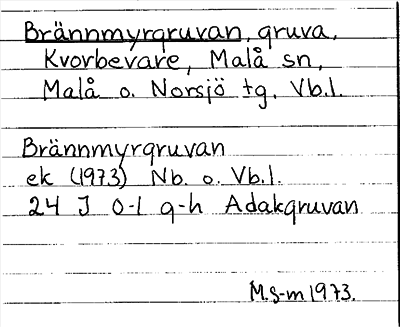 Brännmyrgruvan, gruva,
Kvorbevare, Malå sn,
Malå o. Norsjö tg, Vb.l.
Brännmyrgruvan
ek (1973) Nb. o. Vb.l.
24 J 0-1 g-h Adakgruvan
M.S-m 1973.